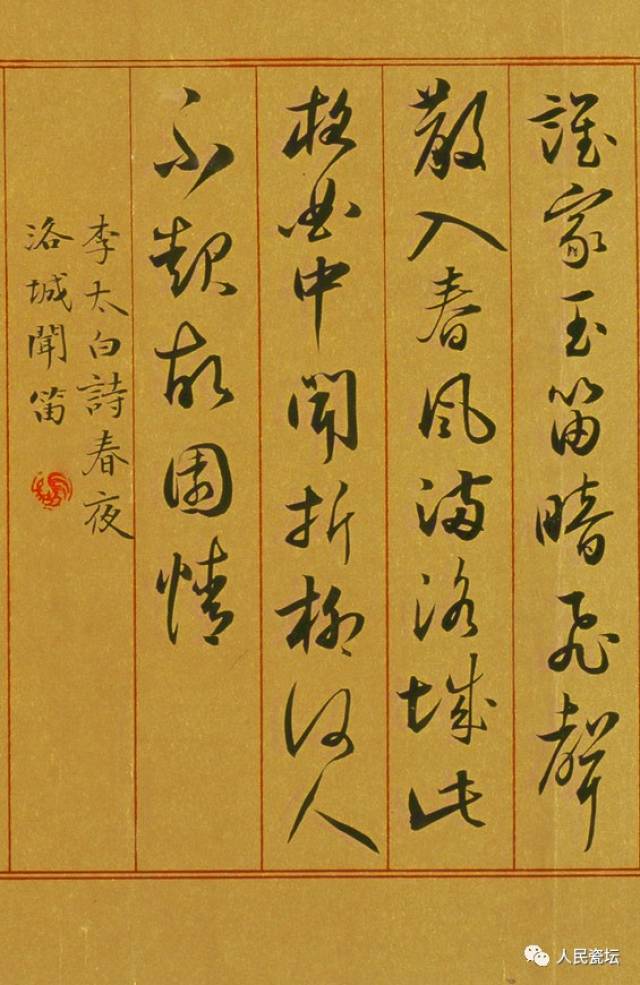 誰家玉笛暗飛聲
散入春風滿洛城此
夜曲中聞折柳何人
不起故園情
李太白詩春夜
洛城聞笛
人民瓷坛